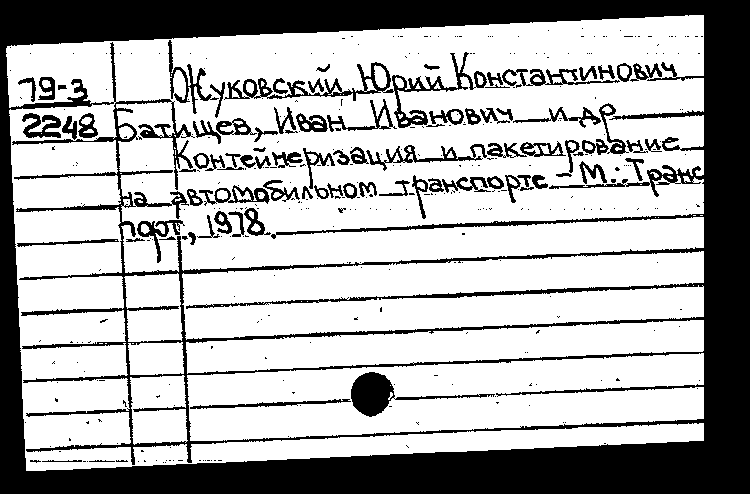 79-3 Жуковский, Юрий Константинович
2248 Батищев, Иван Иванович и др
Контейнеризация и пакетирование
на автомобильном транспорте - М.: Транс
порт, 1978.